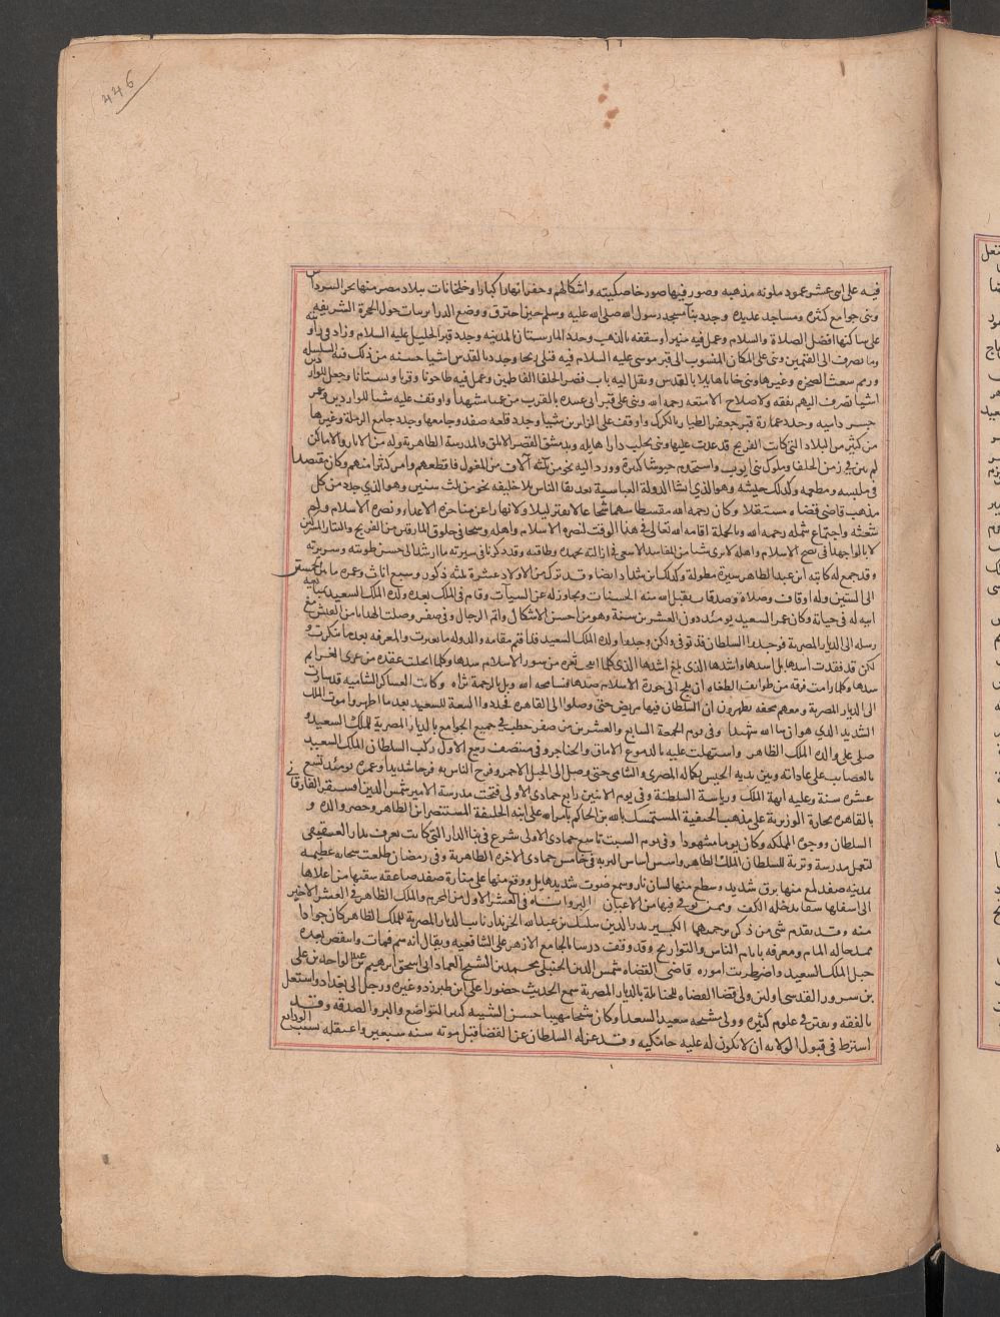 446
فيه على اثنى عشر عمود ملونه مذهبه وصور فيها صور خاصكيته واشكالهم وحفر انهارا كبارا وخلجانات ببلاد مصر منها بحر السرداس
وبنى جوامع كثيره ومساجد عديده وجدد بنآ مسجد رسول الله صلى الله عليه وسلم حين احترق ووضع الدرابزينات حول الحجرة الشريفه
على ساكنها افضل الصلاة والسلام وعمل فيه منبرا وسقفه بالذهب وجدد المارستان بالمدينه وجدد قبر الخليل عليه السلام وزاد فى
وما يصرف الى المقيمين وبنى على المكان المنسوب الى قبر موسى عليه السلام قبه قبلى ريحا وجدد بالقدس اشيا حسنه من ذلك قبه السلسله
ورمم سقف الصخره وغيرها وبنى خانا هايلا بالقدس ونقل اليه باب قصر الخلفا الفاطمين وعمل فيه طاحونا وفرنا وبستانا وجعل للوارد
اشيا تصرف اليهم نفقه ولاصلاح الامتعه رحمه الله وبنى على قبر ابى عبيده بالقرب من مشهدا واوقف عليه شيا للواردين وعمر
جسر داميه وجدد عمارة قبر جعفر الطيار بالكرك واوقف على الزائرين شيا وجدد قلعه صفد وجامعها وجدد جامع الرمله وغيرها
من كثير من البلاد التى كانت الفرنج قد عدت عليها وبنى بحلب دارا هايله وبدمشق القصر الابلق والمدرسة الظاهرية وله من الاثار والاماكن
لم يبن فى زمن الخلفا وملوك بنى ايوب واستخدم جيوشا كثيرة وورد اليه نحو من ثلثه آلاف من المغول فاقطعهم وامر كثيرا منهم وكان مقتصدا
فى ملبسه ومطعمه وكذلك جيشه وهو الذى انشا الدولة العباسية بعد بقا الناس بلا خليفه نحو من ثلث سنين وهو الذى جدد من كل
مذهب قاضى قضاه مستقلا وكان رحمه الله مقسطا شهما شجاعا لا يفتر ليلا ولا نهارا عن مناجزة الاعداء ونصره الاسلام ولم
شعثه واجتماع شمله رحمه الله وبالجملة اقامه الله تعالى فى هذا الوقت لنصره الاسلام واهله وشجا فى حلوق المارقين من الفرنج والتتار
لا يالوا جهدا فى نصح الاسلام واهله وقد ذكرنا فى سيرته ما ارشد الى حسن طويته وسريرته
وقد جمع له كاتبه ابن عبد الظاهر سيرة مطولة وكذلك ابن شداد ايضا وقد ترك من الاولاد عشرة ثلثه ذكور وسبع اناث وعمره ما بين الخمسين
الى الستين وله اوقاف وصلاة وصدقات تقبل الله منه الحسنات وتجاوز له عن السيآت وقام فى الملك بعده ولده الملك السعيد
ابيه له فى حياته وكان عمر السعيد يومئذ دون العشرين سنة وهو من احسن الاشكال واتم الرجال وفى صفر وصلت الهدايا من الفنش مع
رسله الى الديار المصرية فوجدوا السلطان قد توفى ولكن وجدوا ولده الملك السعيد قد اقيم مقامه والدوله ما تغيرت والمعرفه بعده ما تنكرت و
لكن قد فقدت اسدها بل اسدها واشدها الذى بلغ اشدها الذى كلما ثغره من سور الاسلام سدها وكلما انحلت عقده من عرى العزايم
سدها وكلما رامت فرقه من طوايف الطغاه ان تلج الى حوزة الاسلام صدها فسامحه الله وبل بالرحمة ثراه وكانت العساكر الشاميه قد سارت
الى الديار المصرية ومعهم محفه يظهرون ان السلطان فيها مريض حتى وصلوا الى القاهره فجددوا البيعة للسعيد بعد ما اظهروا موت الملك
الشديد الذى هو ان شا الله شهيد وفى يوم الجمعة السابع والعشرين من صفر خطب فى جميع الجوامع بالديار المصرية للملك السعيد و
صلى على والده الملك الظاهر واستهلت عليه بالدموع الاماق والحناجر وفى منتصف ربيع الاول ركب السلطان الملك السعيد
بالعصايب على عاداته وبين يديه الجيش بكماله المصرى والشامى حتى وصل الى الجبل الاحمر وفرح الناس به فرحا شديدا وعمره يومئذ تسع
عشره سنة وعليه ابهة الملك ورياسة السلطنة وفى يوم الاثنين رابع جمادى الاولى فتحت مدرسة الامير شمس الدين آقسنقر الفارقانى
بالقاهره بحارة الوزيرية على مذهب الحنفية المستمسك بالله بن الحاكم بامر الله على ابنه الخليفة المستنصر ابن الظاهر وحضر والده و
السلطان ووجوه المملكه وكان يوما مشهودا وفى يوم السبت تاسع جمادى الاولى شرع فى بنا الدار التى كانت تعرف بدار العقيقى
لتعمل مدرسة وتربة للسلطان الملك الظاهر واسس اساس التربه فى خامس جمادى الاخره الظاهرية وفى رمضان طلعت سحابه عظيمه
بمدينه صفد لمع منها برق شديد وسطع منها لسان نار وسمع صوت شديد هايل ووقع منها على منارة صفد صاعقه شقتها من اعلاها
الى اسفلها شقا يدخله الكف وممن توفى فيها من الاعيان البرواناه فى العشر الاول من المحرم والملك الظاهر فى العشر الاخير
منه وقد تقدم شى من ذكر ترجمتهما الكبير بدر الدين بيليك بن عبد الله الخزندار نايب الديار المصرية للملك الظاهر كان جوادا
ممدحا له المام ومعرفه بايام الناس والتواريخ وقد وقف درسا بالجامع الازهر على الشافعيه ويقال انه سم فمات وانتقض بعده
حبل الملك السعيد واضطربت اموره قاضى القضاه شمس الدين الحنبلى محمد بن الشيخ العماد ابى اسحق ابرهيم بن عبد الواحد بن على
بن سرور القدسى اول من ولى قضا القضاه للحنابلة بالديار المصرية سمع الحديث حضورا على ابن طبرزد وغيره ورحل الى بغداد واشتغل
بالفقه وتفنن فى علوم كثيره وولى مشيخه سعيد السعدا وكان شيخا مهيبا حسن الشيبه كثير التواضع والبر والصدقه وقد
اشترط فى قبول الولايه ان لا يكون له عليه جامكيه وقد عزله السلطان عن القضا قبل موته سنه سبعين واعتقله بسبب الودايع